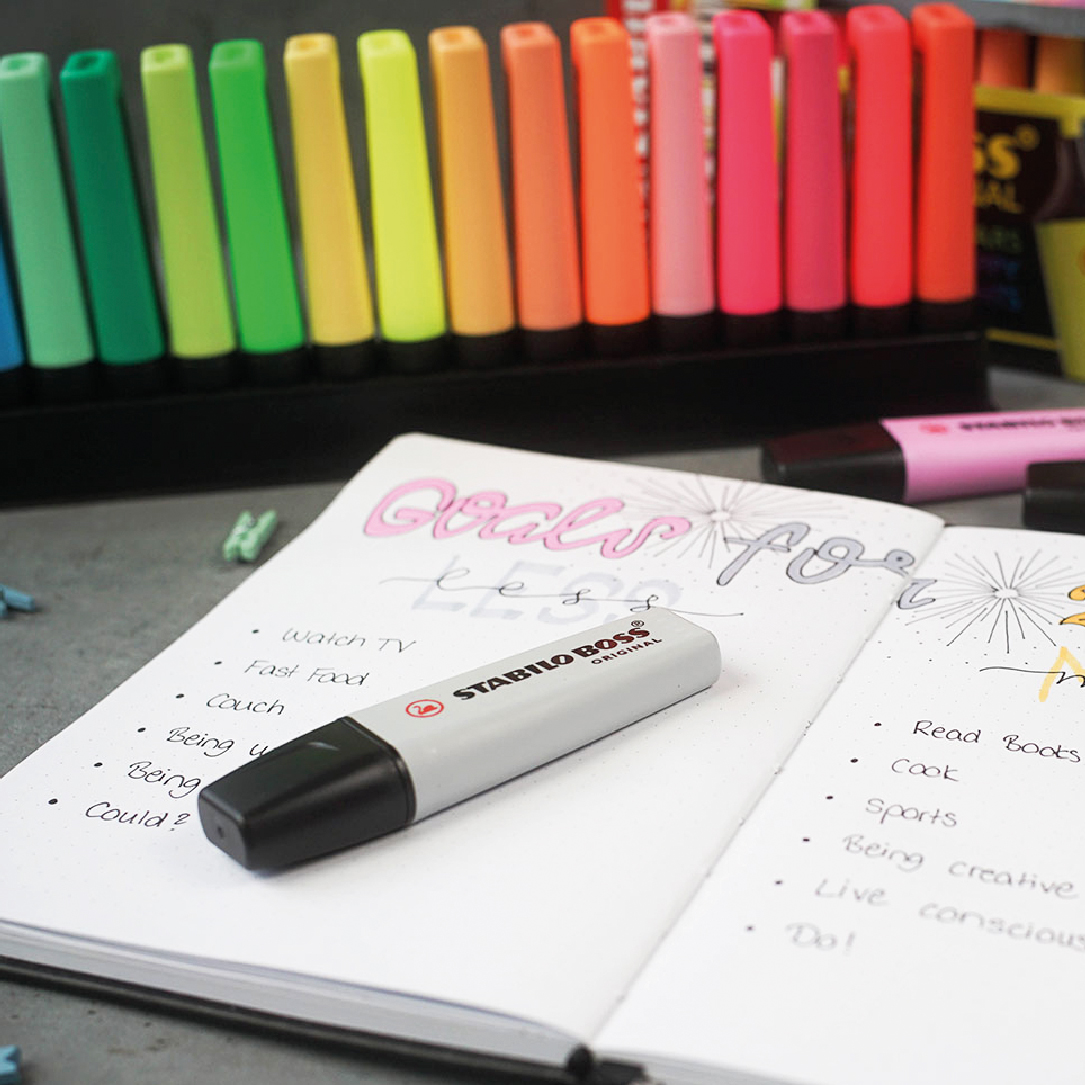 Goals for
LESS
less
Watch TV
Fast Food
Couch
Being
Being
Could?
STABILO BOSS®
ORIGINAL
Read Books
Cook
Sports
Being creative
Live
Do!
STABILO